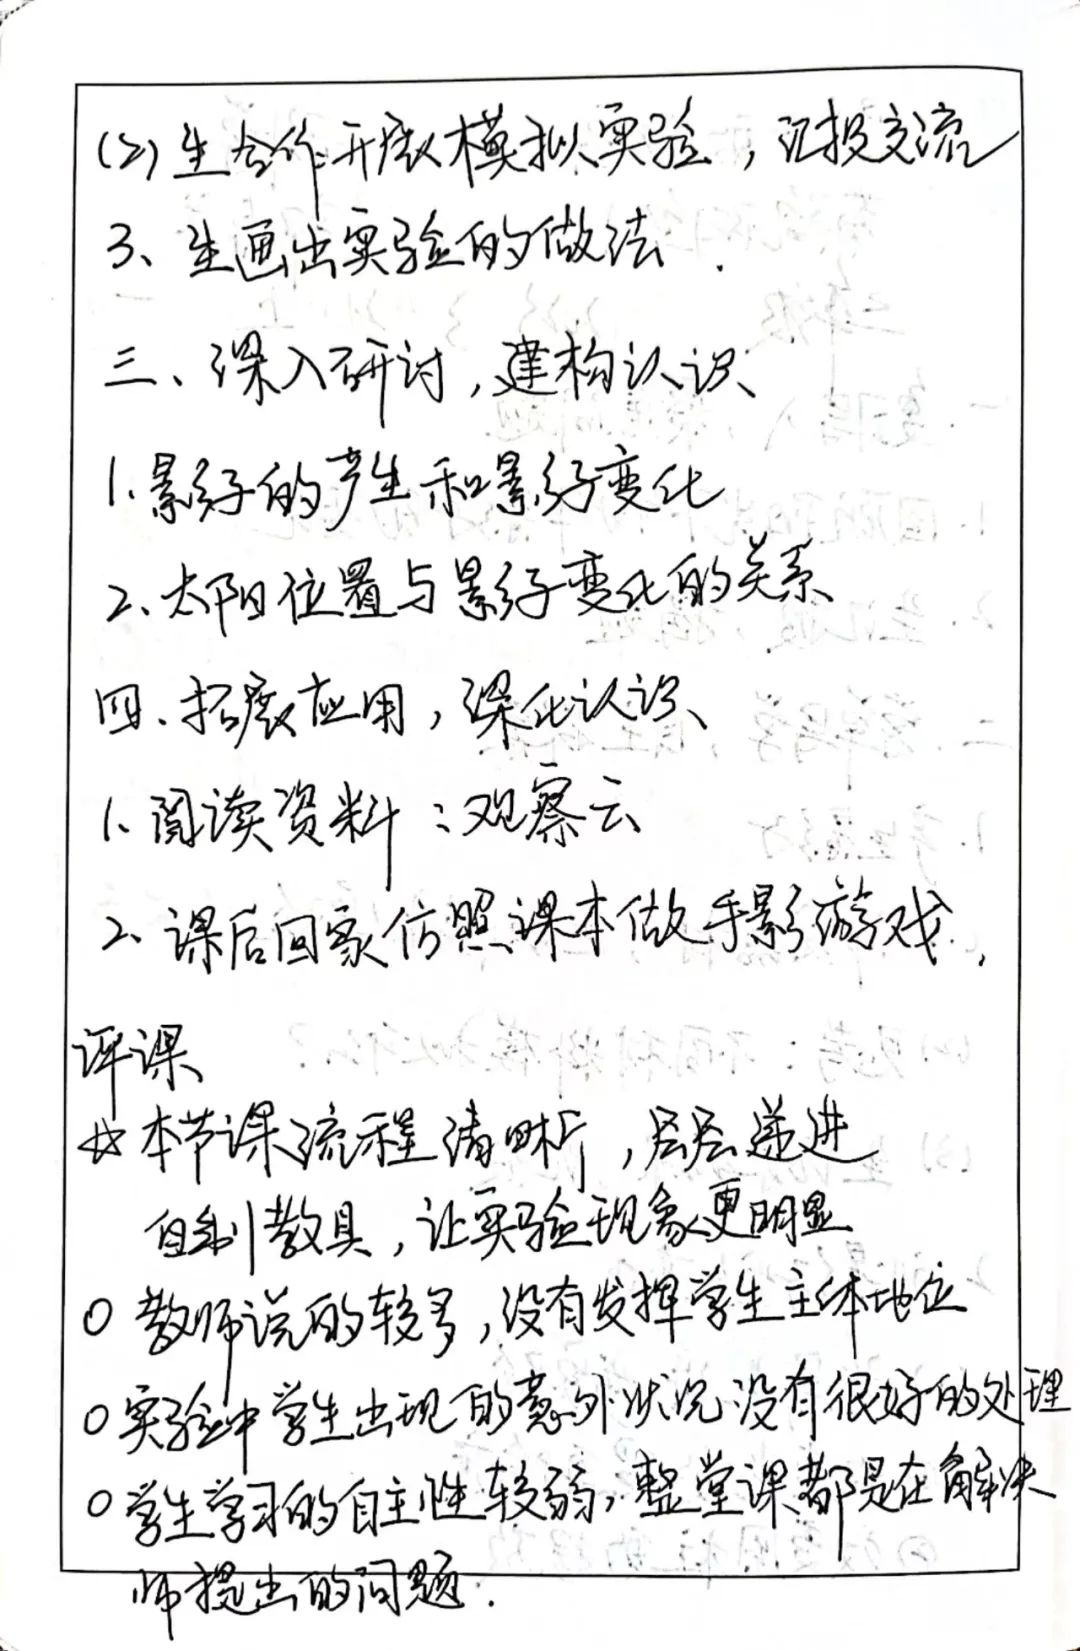 (2)生合作开展模拟实验，汇报交流
3、生画出实验的做法.
三、深入研讨，建构认识
1.影子的产生和影子变化
2、太阳位置与影子变化的关系
四、拓展应用，深化认识
1、阅读资料：观察云
2、课后回家仿照课本做手影游戏.
评课
☆本节课流程清晰，层层递进
自制教具，让实验现象更明显
○教师说的较多，没有发挥学生主体地位
○实验中学生出现的意外状况没有很好的处理
○学生学习的自主性较弱，整堂课都是在解决
师提出的问题.